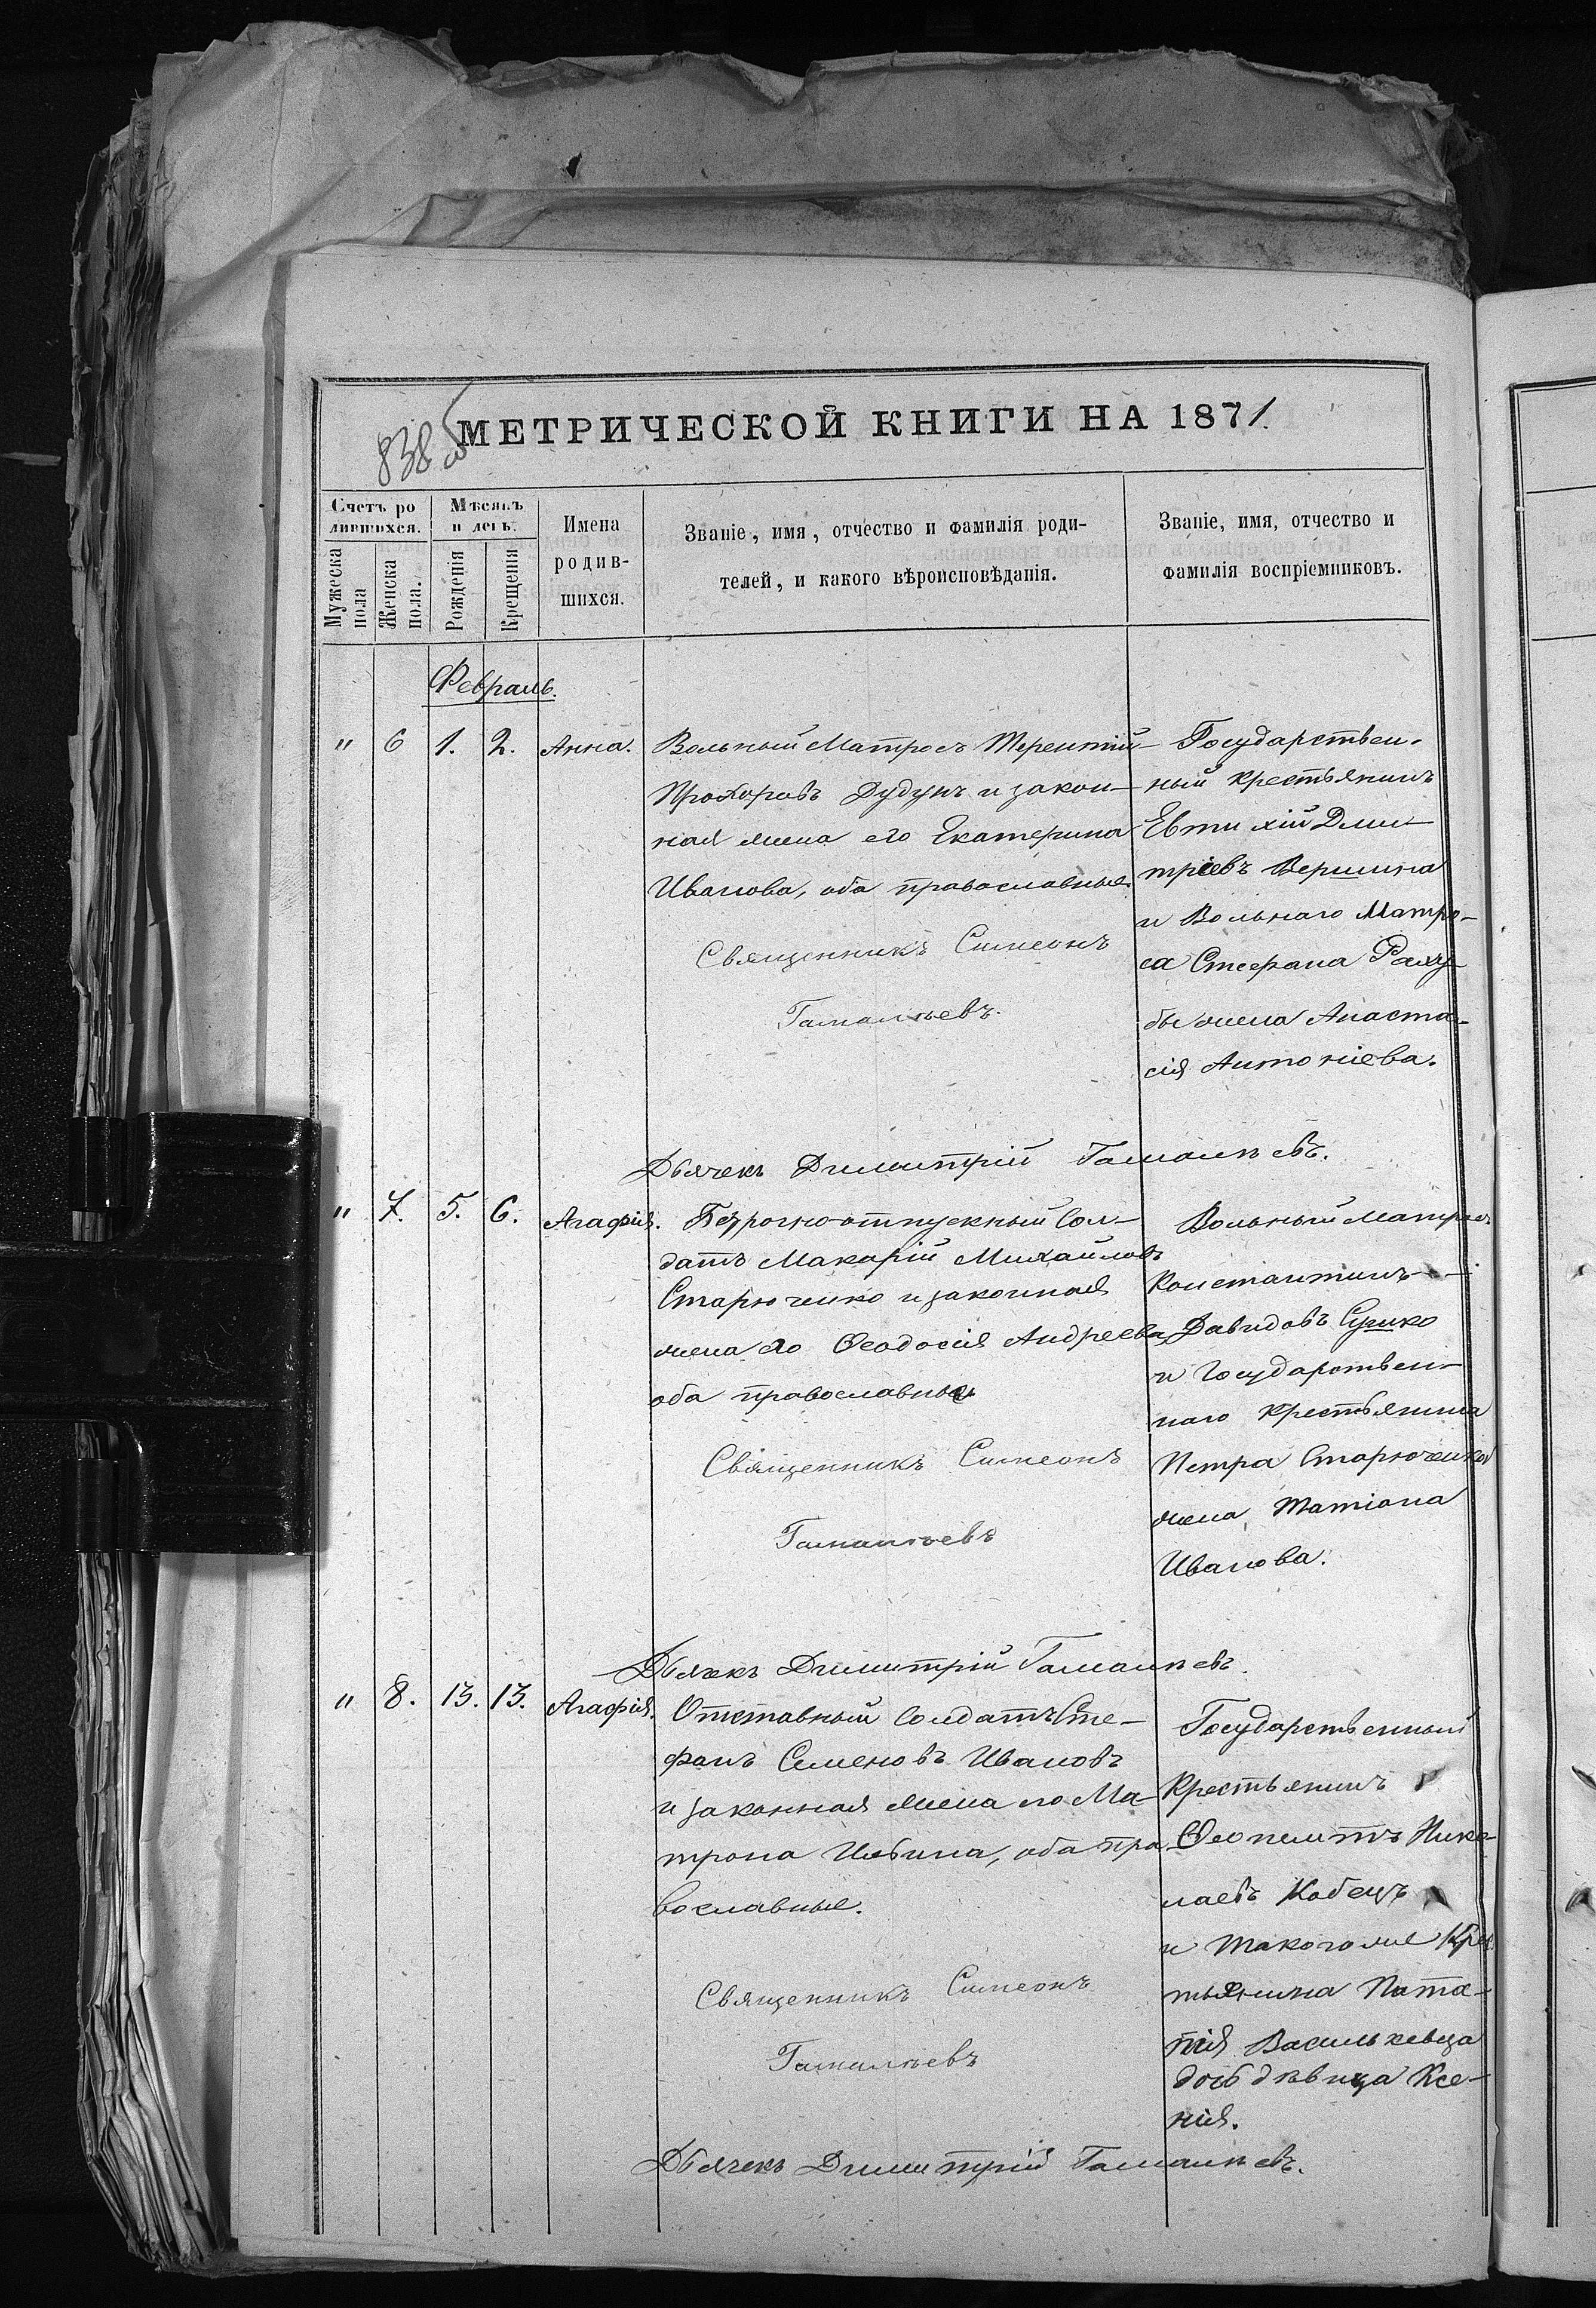 838 об
МЕТРИЧЕСКОЙ КНИГИ НА 1871.
Счетъ ро
дившихся.
Мужеска
пола
Женска
пола.
Мѣсяцъ
и день.
Рожденія
Крещенія
Имена
родив-
шихся.
Званіе, имя, отчество и фамилія роди-
телей, и какого вѣроисповѣданія.
Званіе, имя, отчество и
фамилія воспріемниковъ.
Февраль.
" 6 1. 2. Анна.
Вольный Матросъ Терентій
Прохоровъ Дудунъ и закон-
ная жена его Екатерина
Иванова, оба православные.
Священникъ Симеонъ
Гамалѣевъ.
Государствен-
ный крестьянинъ
Евтихій Дми-
тріевъ Вершина
и Вольнаго Матро-
са Стефана
жена Анаста-
сія Антоніева.
Дьячекъ Димитрій Гамалѣевъ.
" 7. 5. 6. Агафія.
Безсрочно-отпускный Сол-
датъ Макарій Михайловъ
Старюченко и законная
жена его Феодосія Андреева,
оба православные
Священникъ Симеонъ
Гамалѣевъ
Вольный Матросъ
Константинъ
Давидовъ Сушко
и Государствен-
наго крестьянина
Петра Старюченков
жена, Татіана
Иванова.
Дьячекъ Димитрій Гамалѣевъ.
" 8. 13. 13. Агафія.
Отставный Солдатъ Сте-
фанъ Семеновъ Ивановъ
и законная жена его Ма-
трона Ильина, оба пра-
вославные.
Священникъ Симеонъ
Гамалѣевъ
Государственный
Крестьянинъ
Феопемптъ Нико-
лаевъ Кобецъ
и такогоже Крес
тьянина Пата-
пія Василькевца
дочь дѣвица Ксе-
нія.
Дьячекъ Димитрій Гамалѣевъ.